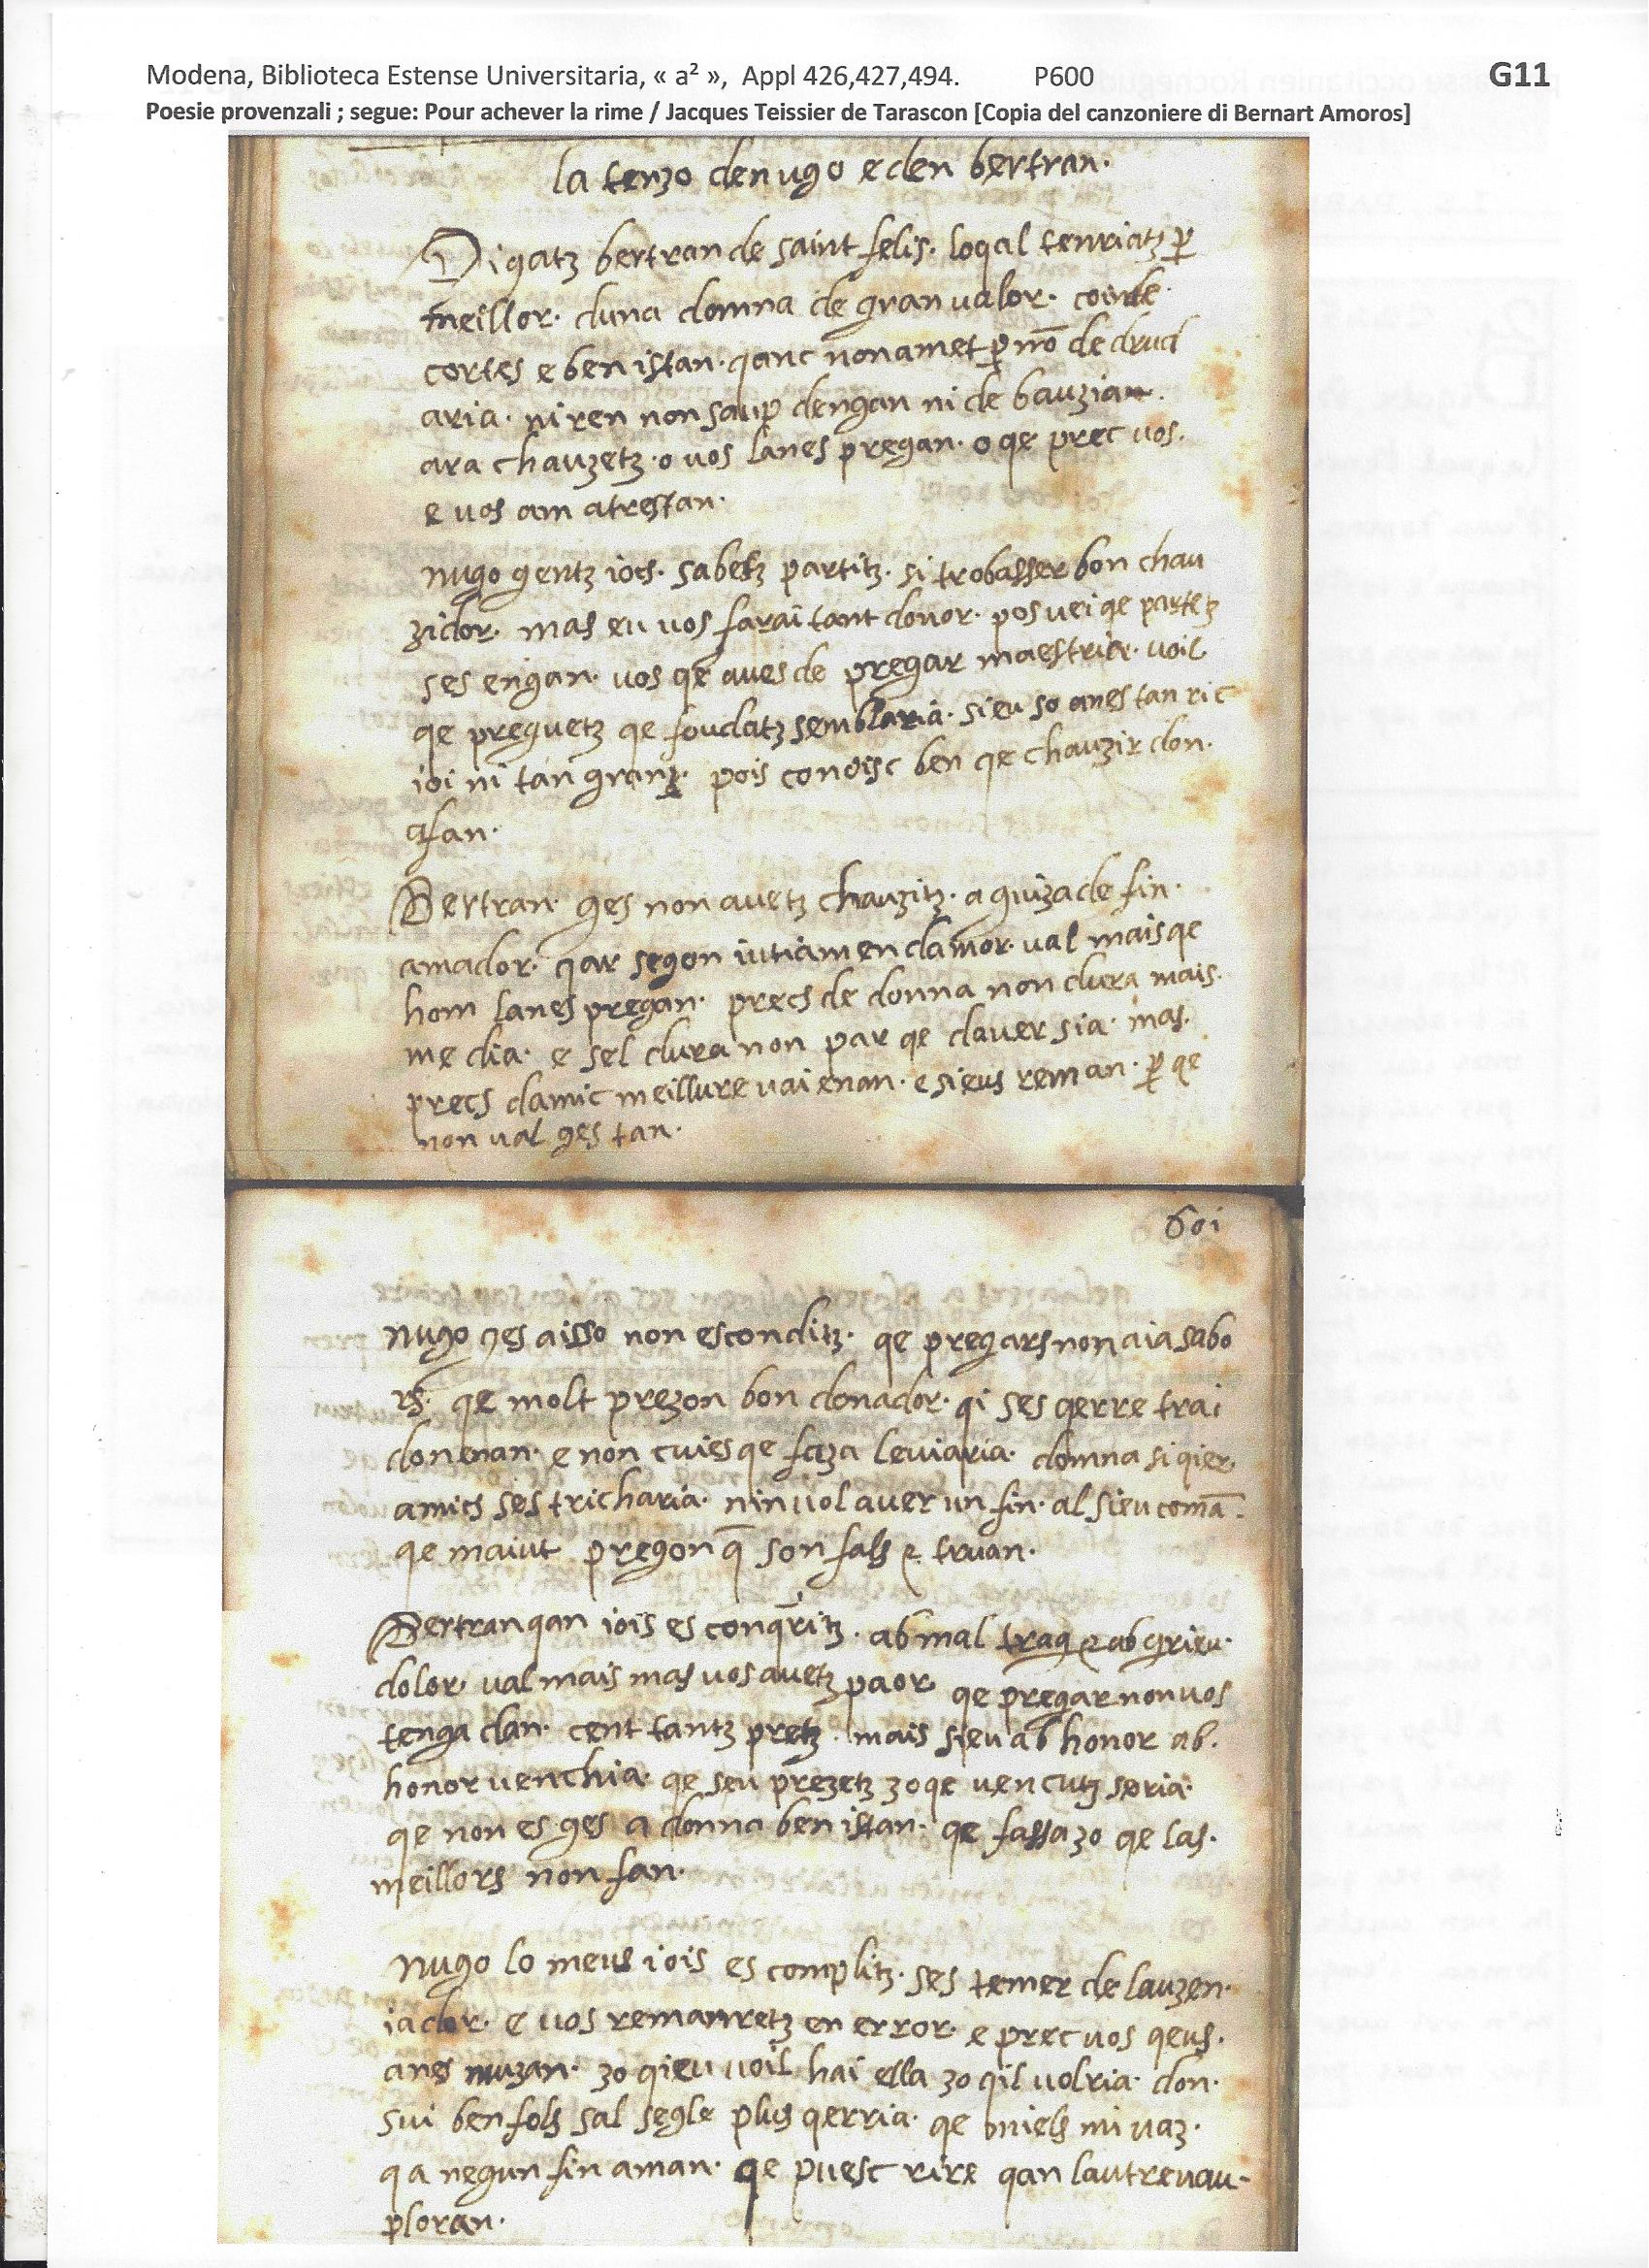 Modena, Biblioteca Estense Universitaria, « a² », Appl 426,427,494. P600 G11
Poesie provenzali ; segue: Pour achever la rime / Jacques Teissier de Tarascon [Copia del canzoniere di Bernart Amoros]
la tenzo denugo eden bertran.
Digatz bertran de saint felis. loqal tenriatz p̲
meillor. duna domna de gran valor. coinde.
cortes e ben istan. qanc nonamet p̲ nō de drud
aria. ni ren non saup dengan ni de bauzia.
ara chauzetz. o vos lanes pregan. o qe prec vos.
e vos am atrestan.
nugo gentz iocs. sabetz partitz. si trobasser bon chau
zidor. mas eu vos farai tant donor. pos vei qe partetz
ses engan. vos qe aues de pregar maestria. voil
qe preguetz qe foudatz semblaria. sieu so anes tan ric
ioi ni tan granz. pois conoisc ben qe chauzir don.
afan.
Bertran. ges non auetz chauzitz. a guiza de fin.
amador. qar segon iutiamen damor. val mais qe
hom lanes pregan. precs de donna non dura mais.
me dia. e sel dura non par qe dauer sia. mas.
precs damic meillure vai enan. e sieus reman. p̲ qe
non val ges tan.
601
nugo ges aisso non esconditz. qe pregars non aia sabo
rs. qe molt prezon bon donador. qi ses qerre trai
don enan. e non cuies qe faza leviaria. domna si qier.
amics ses tricharia. nin vol aver un fin. al sieu comā.
qe maint pregon q̄ son fals e truan.
Bertran qan iois es conqritz. ab mal trag e ab grieu.
dolor. val mais mas vos avetz paor. qe pregar non vos
tenga dan. cent tantz pretz. mais sieu ab honor ab.
honor venchia. qe seu prezetz zo qe vencutz seria.
qe non es ges a donna ben istan. qe fassa zo qe las.
meillors non fan.
nugo lo meus iois es complitz. ses temer de lauzen.
iador. e vos remanretz en error. e prec vos qeus.
anes muzan. zo qieu voil hai ella zo qil volria. don.
sui ben fols sal segle plus qerria. qe miels mi vaz.
qa negun fin aman. qe puesc rire qan lautre vau.
ploran.